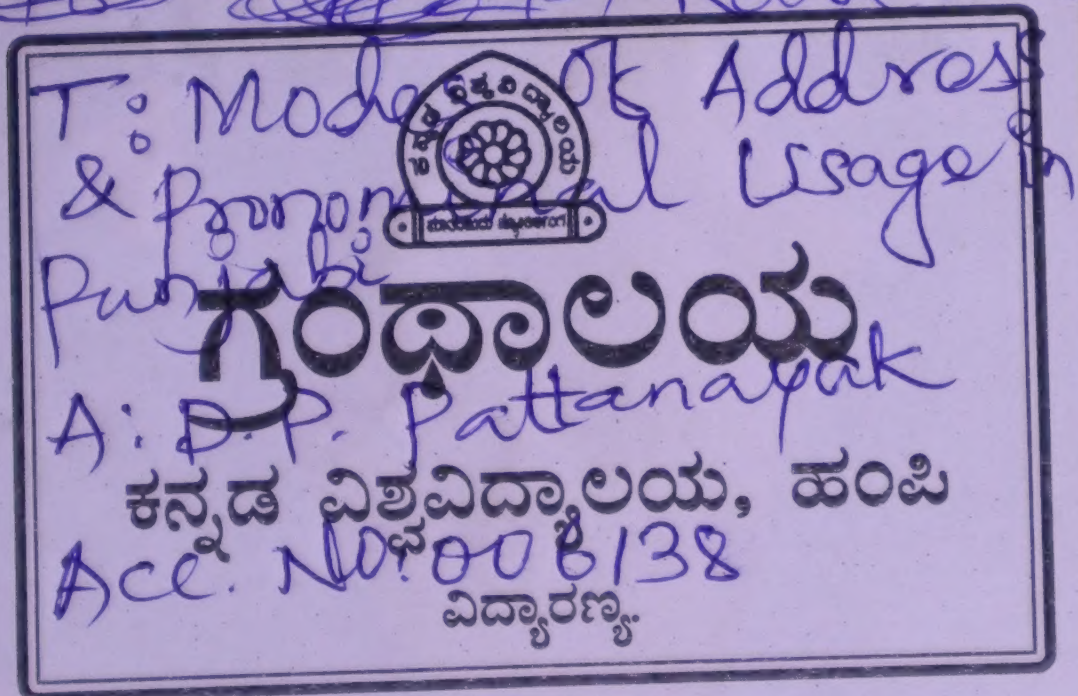 T: Modes Of Address
ಕನ್ನಡ ವಿಶ್ವವಿದ್ಯಾಲಯ
& Pronominal Usage in
Punjabi
ಗ್ರಂಥಾಲಯ
A: D.P. Pattanayak
ಕನ್ನಡ ವಿಶ್ವವಿದ್ಯಾಲಯ, ಹಂಪಿ
Acc. No: 006138
ವಿದ್ಯಾರಣ್ಯ.